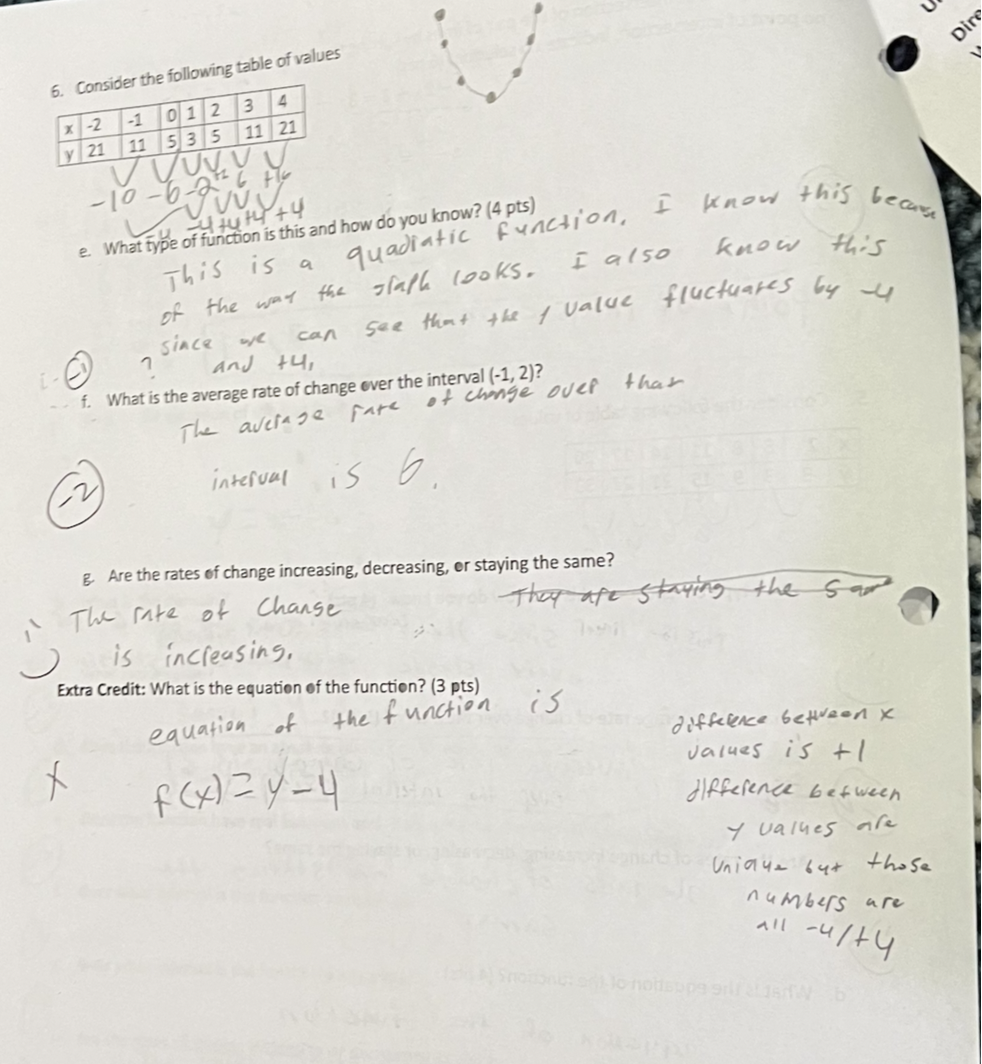 Dire
6. Consider the following table of values
x -2 -1 0 1 2 3 4
y 21 11 5 3 5 11 21
-10 -6 -2 +2 6 +10
-4 +4 +4 +4
e. What type of function is this and how do you know? (4 pts)
This is a quadiatic function. I know this because
of the way the graph looks. I also know this
since we can see that the y value fluctuates by -4
and +4.
?
-1
f. What is the average rate of change over the interval (-1, 2)?
The average rate of change over that
interval is 6.
-2
g. Are the rates of change increasing, decreasing, or staying the same?
They are staying the same
The rate of change
is increasing.
Extra Credit: What is the equation of the function? (3 pts)
equation of the function is
f(x) = y-4
difference between x
values is +1
difference between
y values are
unique but those
numbers are
all -4/+4